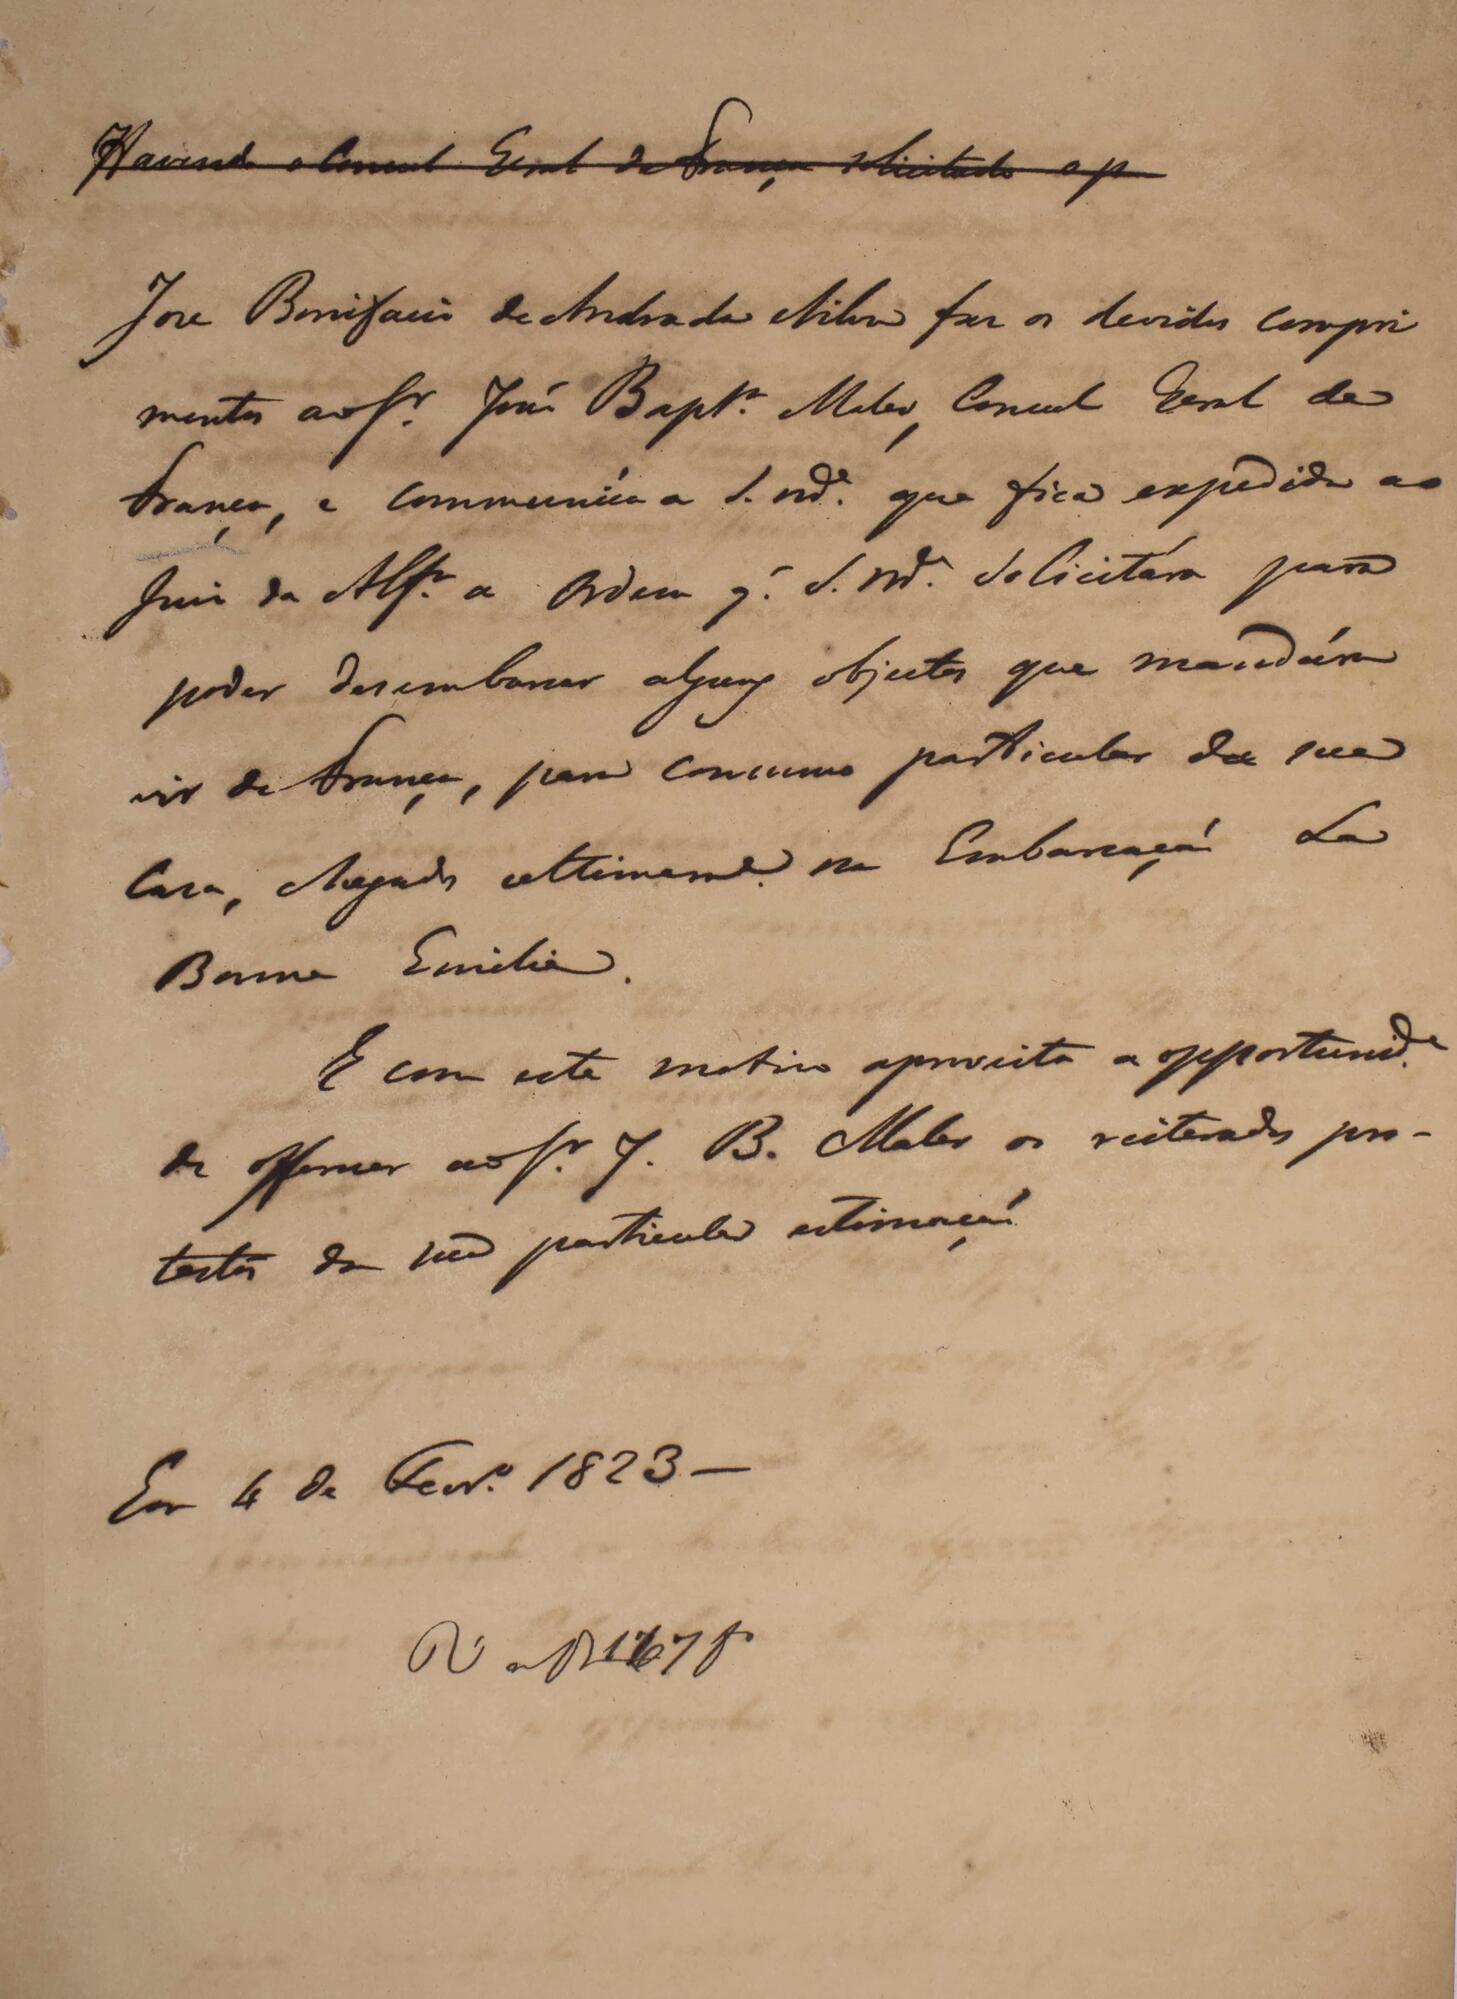 Havendo o Consul Geral de França solicitado o p
Jose Bonifacio de Andrada e Silva faz os devidos compri
mentos ao Sr. João Bapta. Maler, Consul Geral de
França, e communica a S. Mce. que fica expedida ao
Juiz da Alfa. a Ordem q. S. Mce. solicitára para
poder desembarcar alguns objectos que mandára
vir de França, para consumo particular da sua
Casa, chegados ultimamte. na Embarcação La
Bonne Emilie.
E com este motivo aproveita a opportunide.
de offerecer ao Sr. J. B. Maler os reiterados pro-
testos da sua particular estimação
Em 4 de Fevro. 1823 —